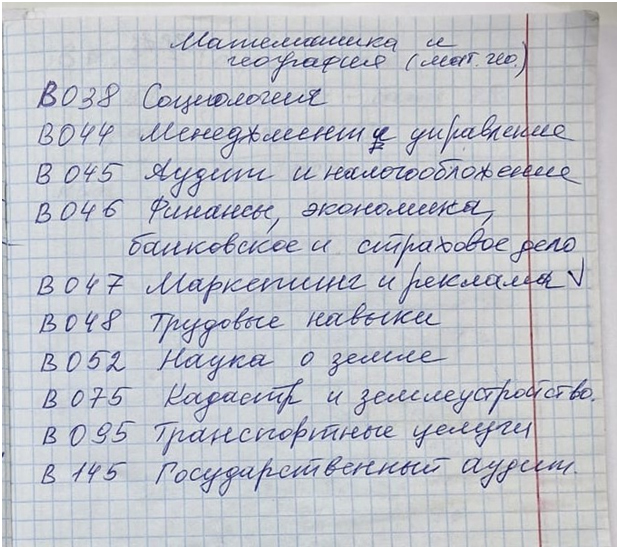 Математика и
география (мат. гео.)
В038 Социология
В044 Менеджмент и управление
В045 Аудит и налогообложение
В046 Финансы, экономика,
банковское и страховое дело
В047 Маркетинг и реклама ✓
В048 Трудовые навыки
В052 Наука о земле
В075 Кадастр и землеустройство.
В095 Транспортные услуги
В 145 Государственный аудит.